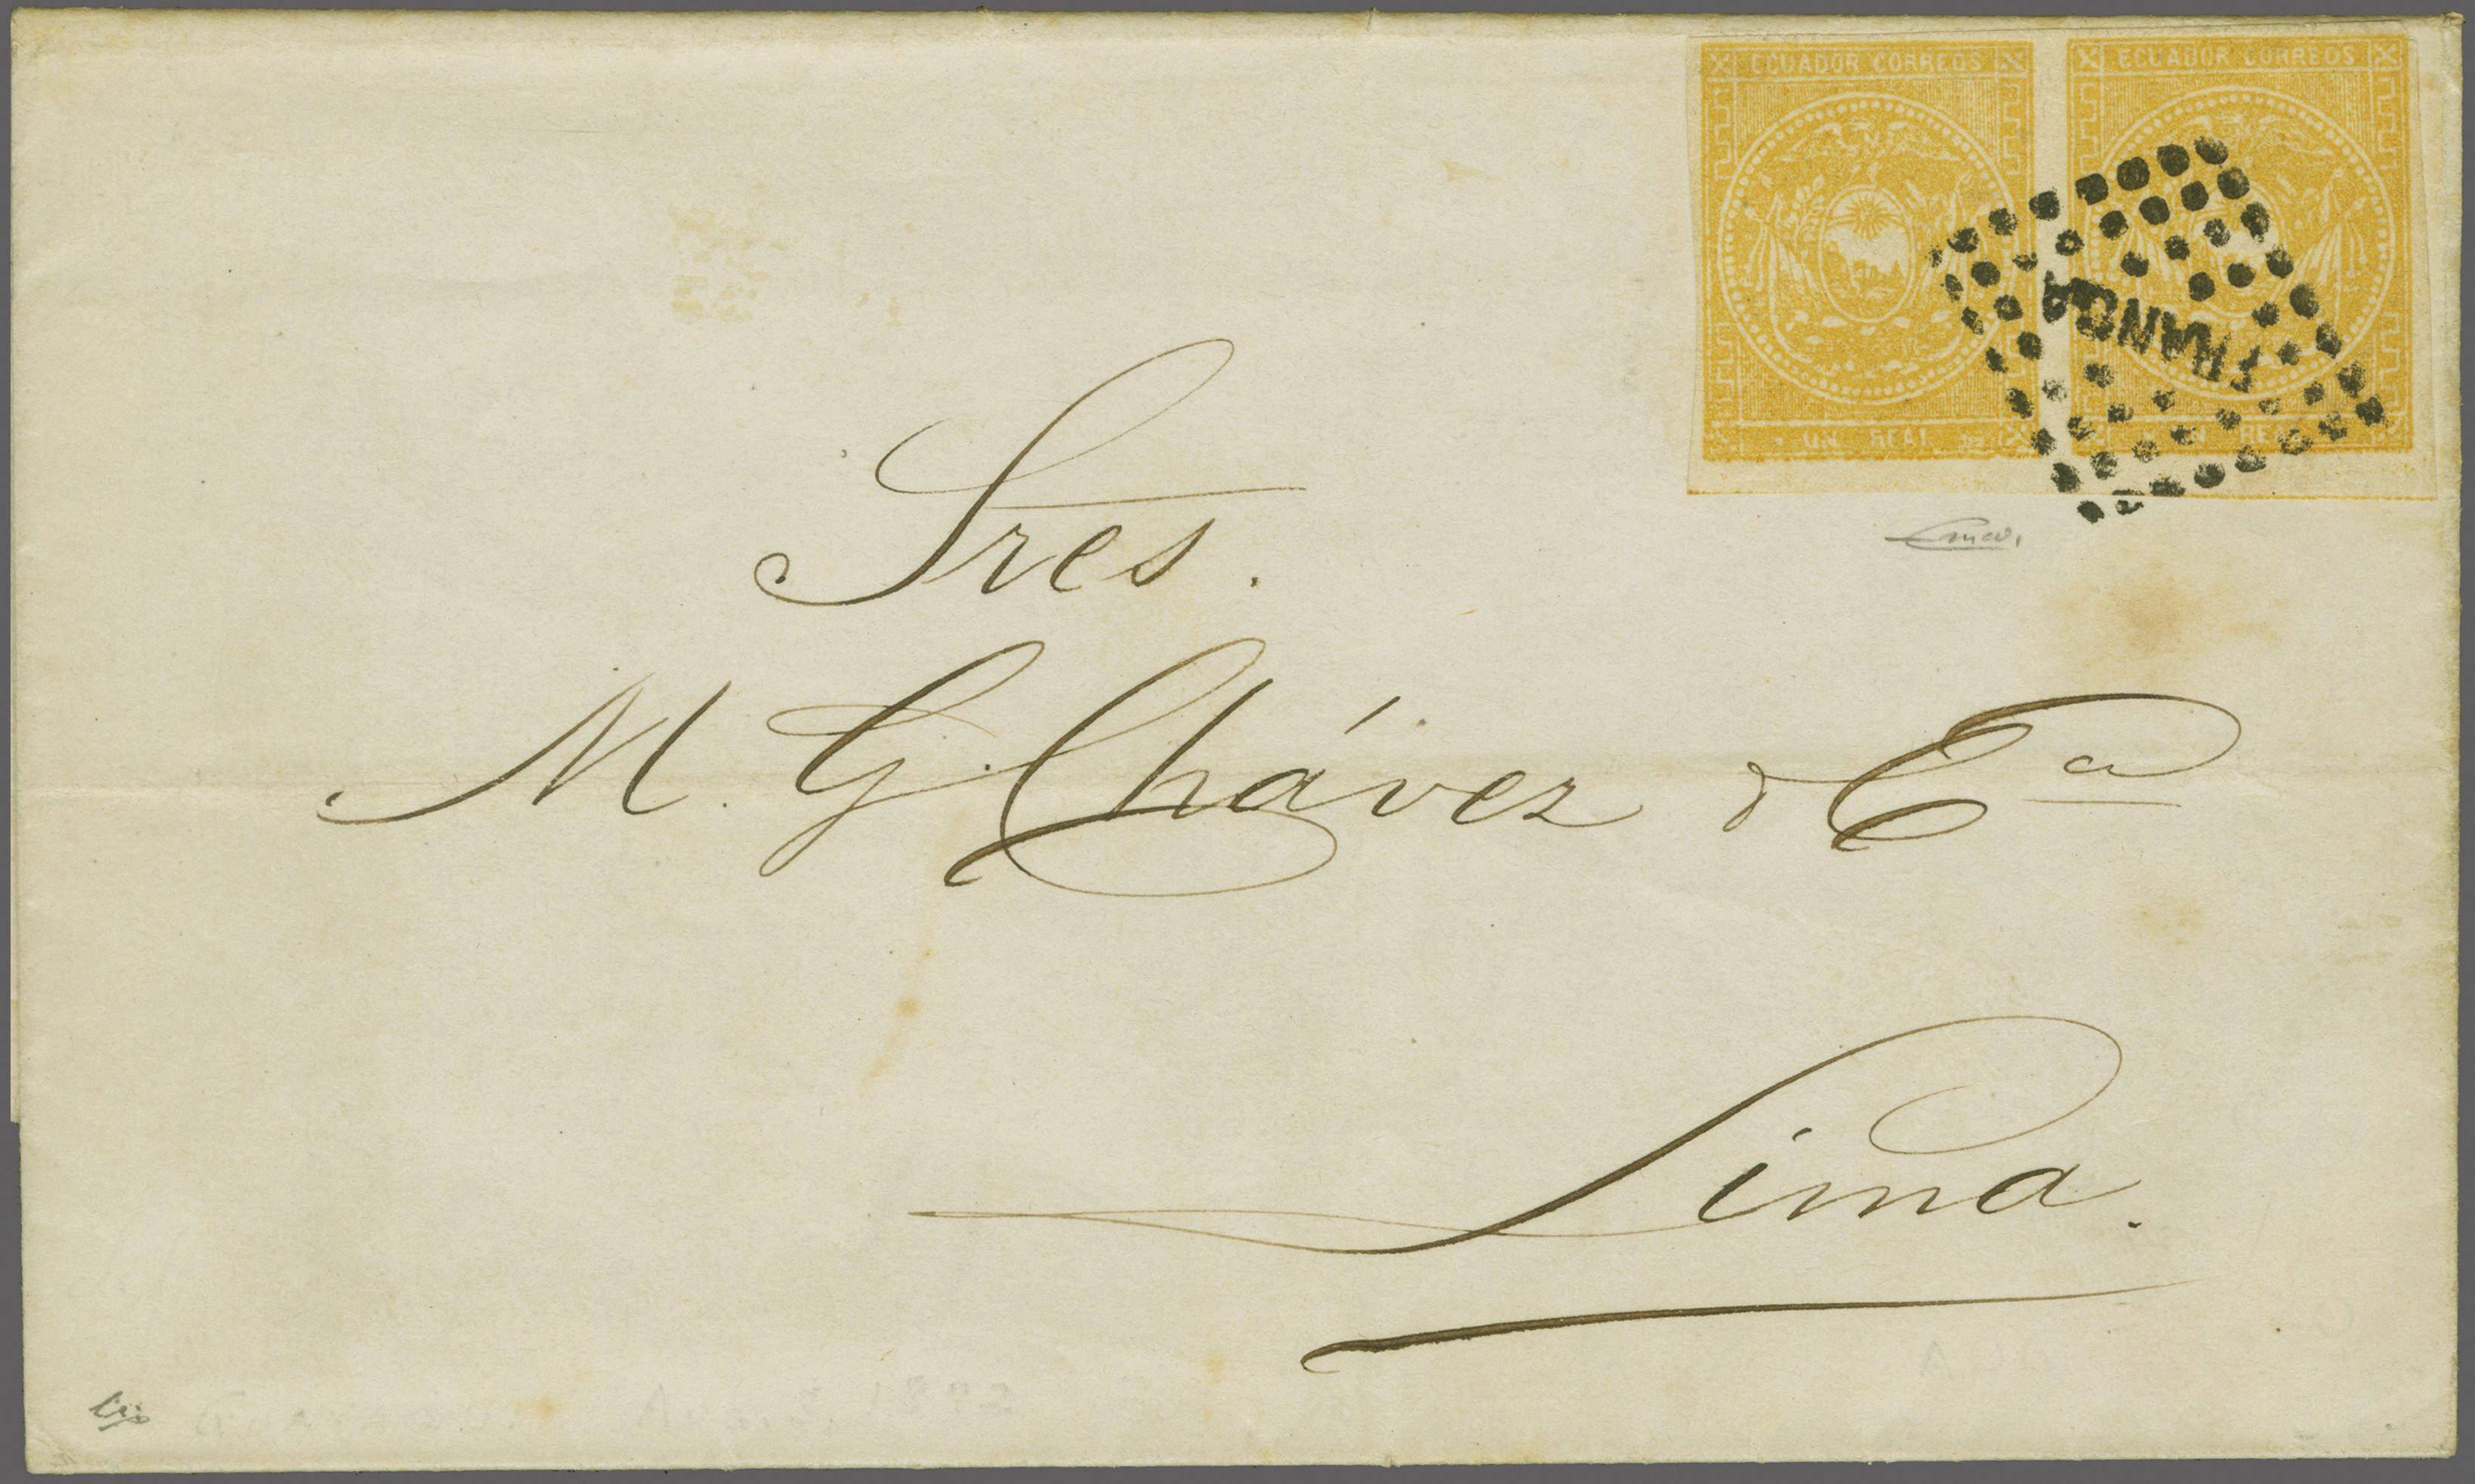 ECUADOR CORREOS ECUADOR CORREOS
FRANCA
UN REAL UN REAL
Sres.
M. G. Chávez & Cª
Lima.